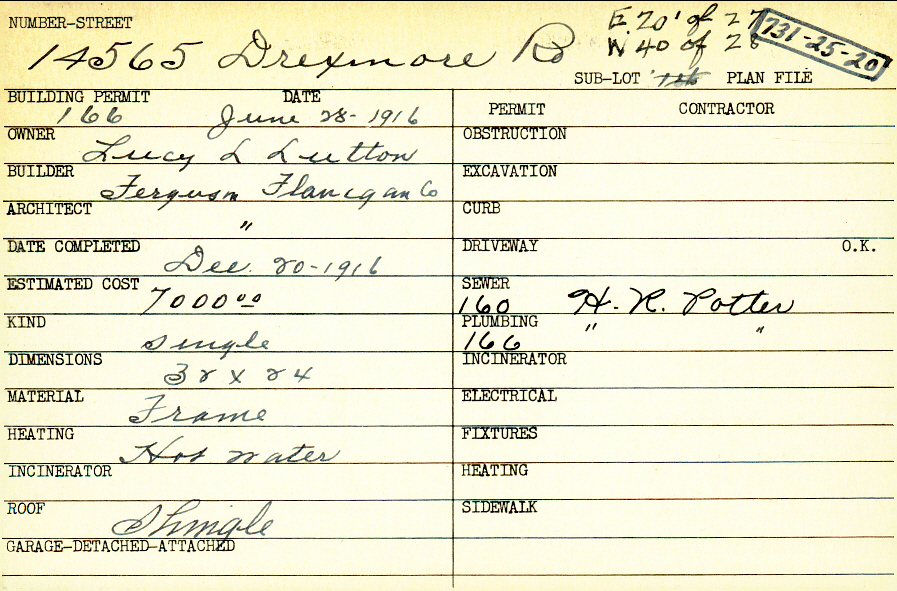 NUMBER-STREET
14565 Drexmore Rd
E. 20' of 27
W 40 of 28
731-25-20
SUB-LOT PLAN FILE
BUILDING PERMIT DATE
166 June 28-1916
OWNER
Lucy L Lutton
BUILDER
Ferguson Flanigan Co
ARCHITECT
"
DATE COMPLETED
Dec. 20-1916
ESTIMATED COST
7000.00
KIND
single
DIMENSIONS
32 x 24
MATERIAL
Frame
HEATING
Hot water
INCINERATOR
ROOF
Shingle
GARAGE-DETACHED-ATTACHED
PERMIT CONTRACTOR
OBSTRUCTION
EXCAVATION
CURB
DRIVEWAY O.K.
SEWER
160 H. R. Potter
PLUMBING
166 " "
INCINERATOR
ELECTRICAL
FIXTURES
HEATING
SIDEWALK